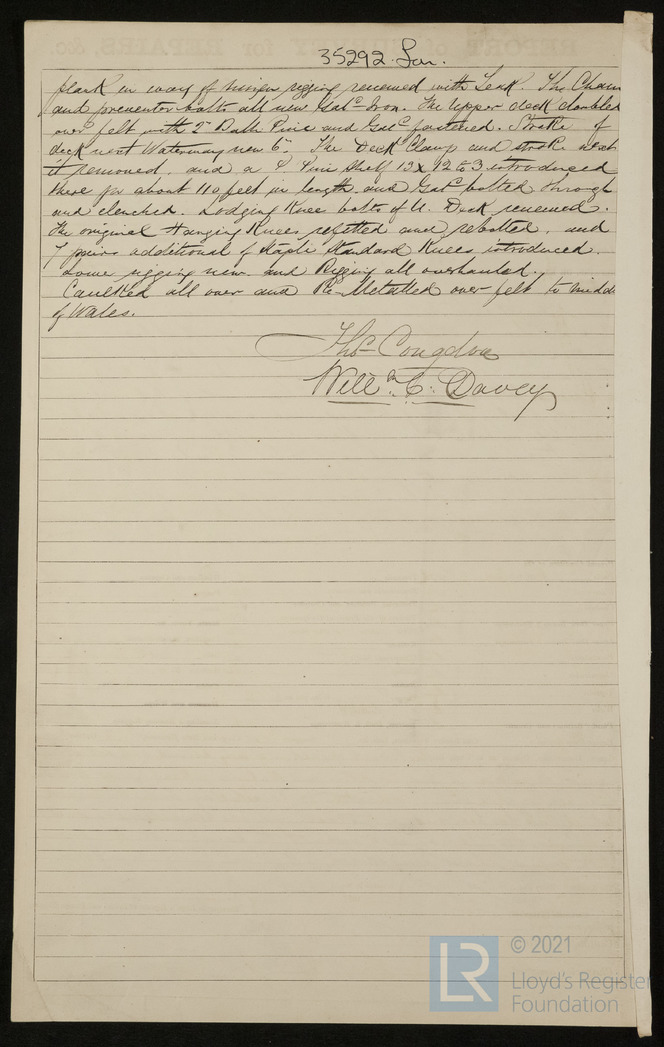 35292 Lon.
plank in way of mizen rigging renewed with Teak. The Chain
and preventer bolts all new Galc Iron. The Upper deck doubled
over felt with 2" Baltic Pine and Galc fastened. Strake of
deck next Waterway new 6". The Deck Clamp and strake next
it removed, and a P Pine Shelf 13 x 12 to 3 introduced
there for about 110 feet in length, and Galc bolted through
and clenched. Lodging Knee bolts of U. Deck renewed.
The original Hanging Knees refitted and rebolted, and
7 pairs additional of Staple Standard Knees introduced.
Some rigging new and Rigging all overhauled.
Caulked all over and Re-Metalled over felt to midd
of Wales.
Thos Congdon
Willm C. Davey
LR
© 2021
Lloyd's Register
Foundation